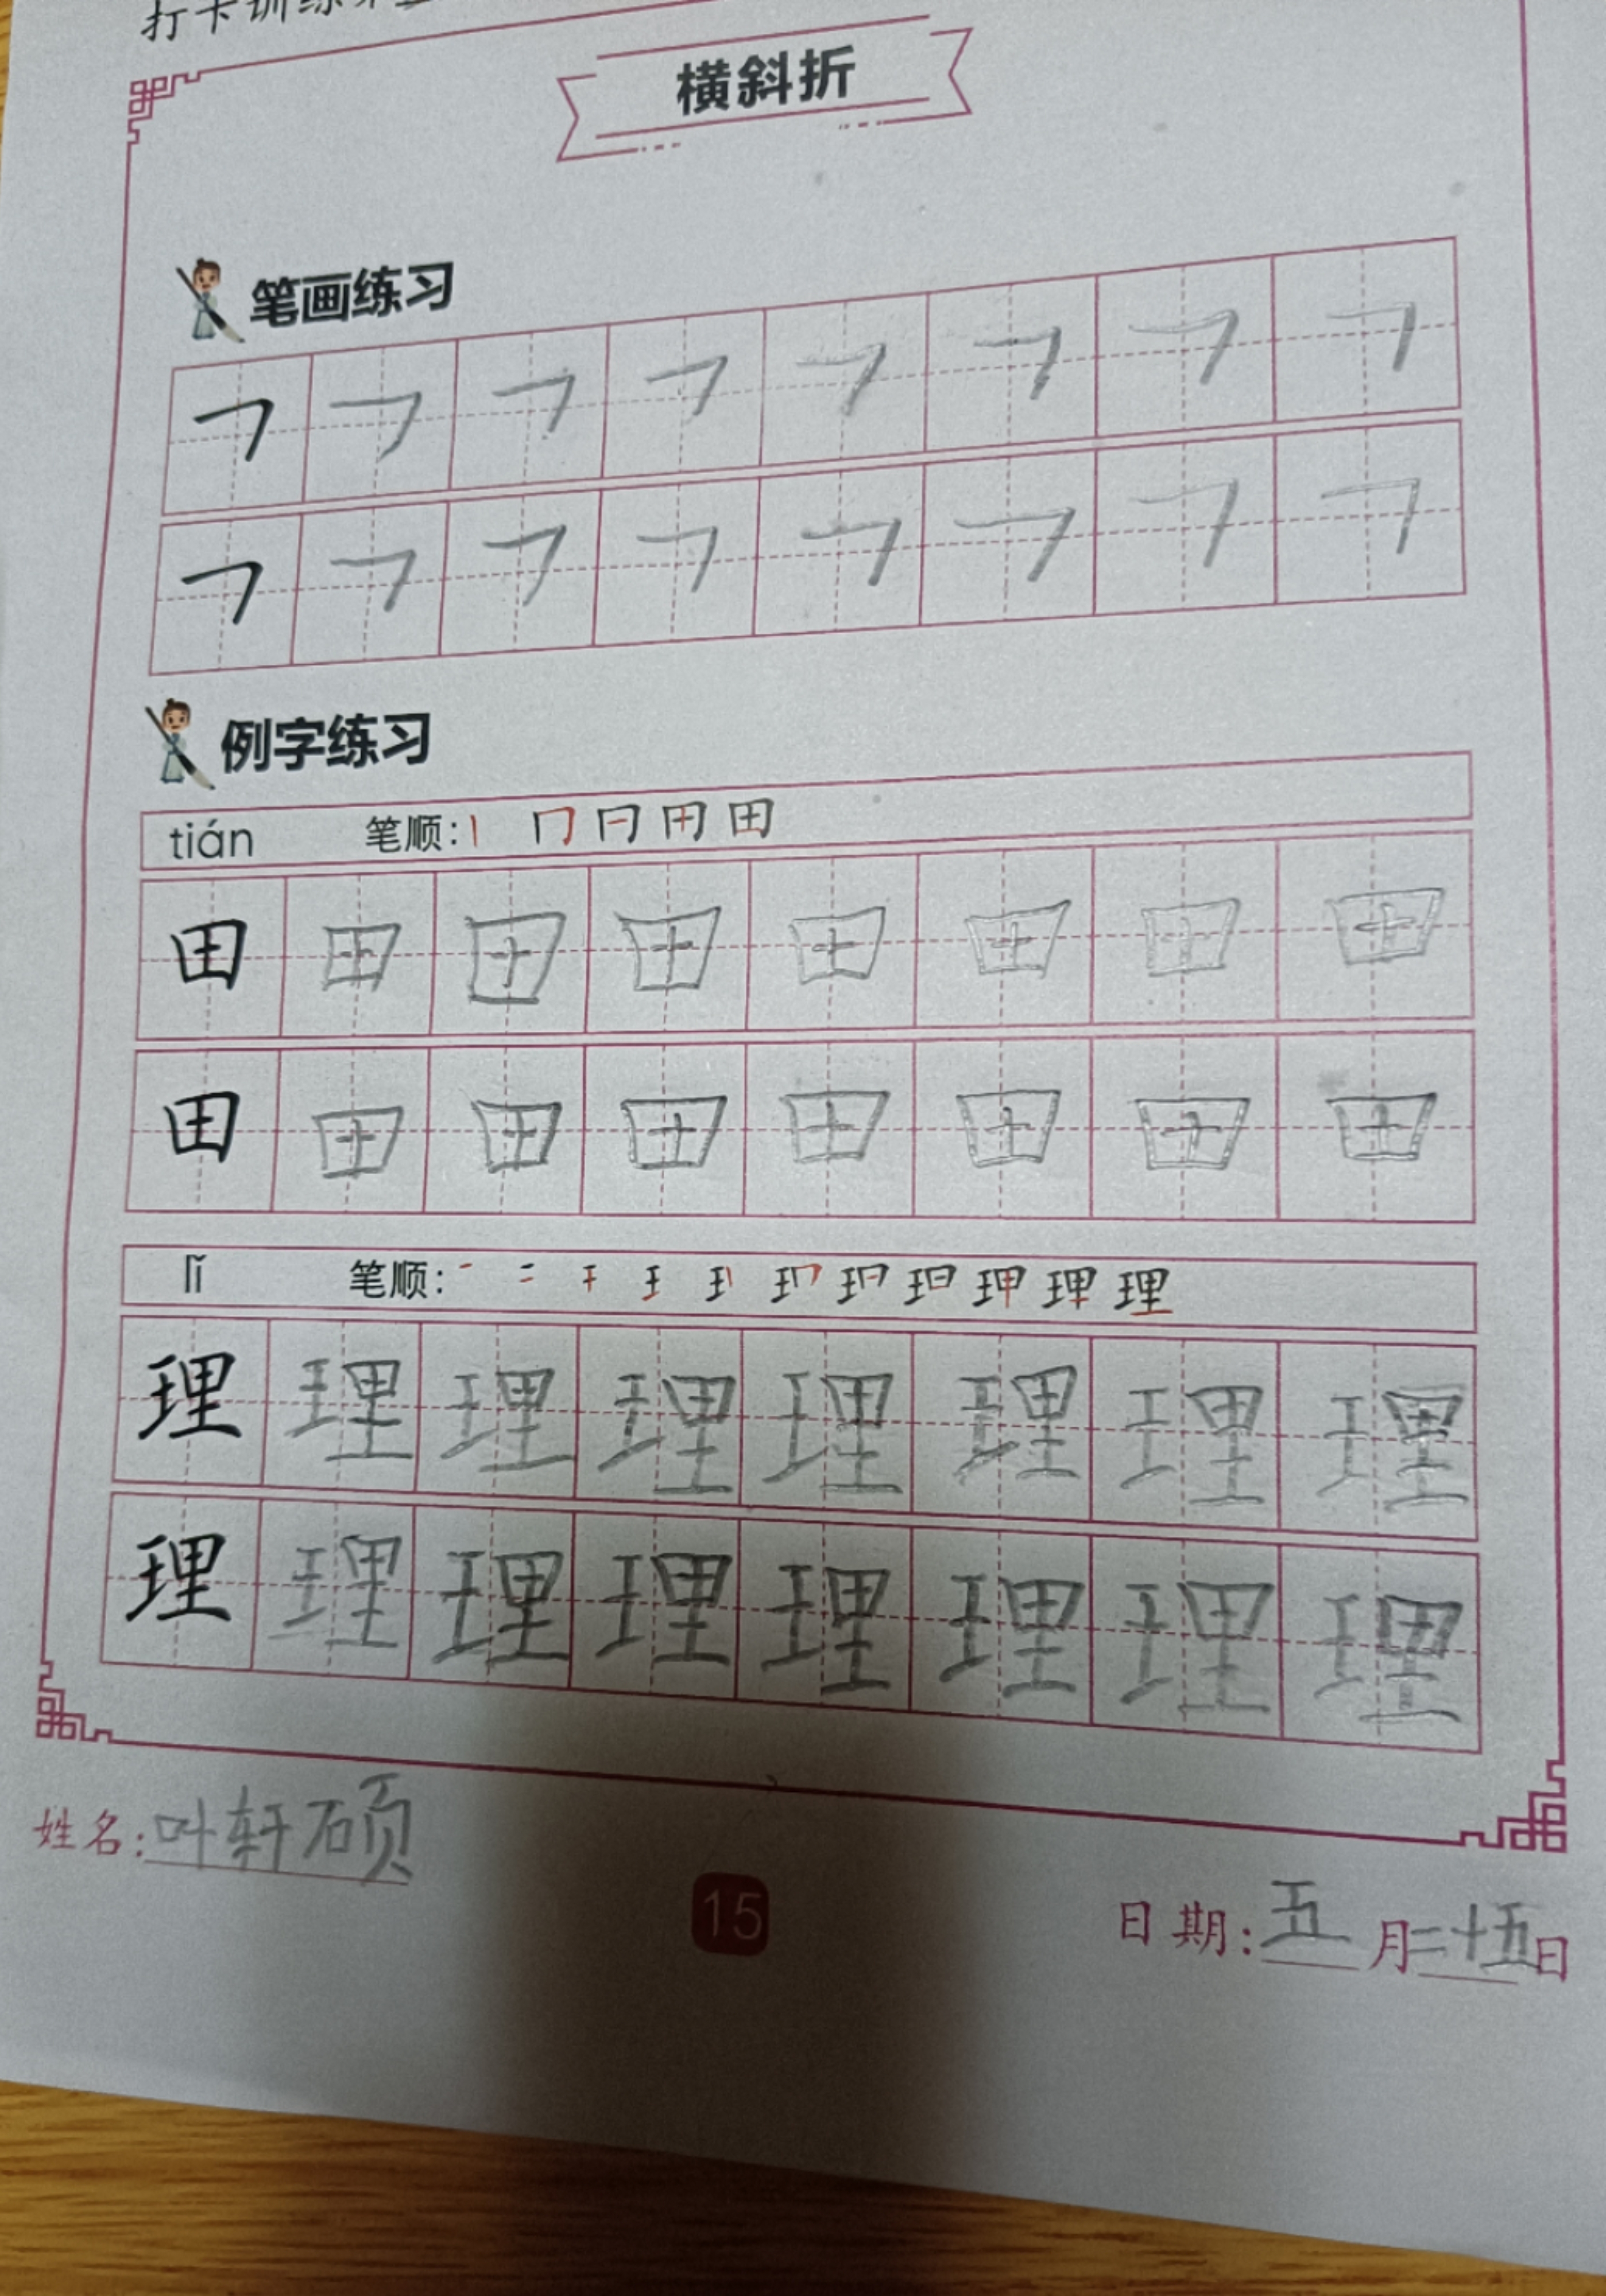 打卡训练
横斜折
笔画练习
㇕ ㇕ ㇕ ㇕ ㇕ ㇕ ㇕ ㇕
㇕ ㇕ ㇕ ㇕ ㇕ ㇕ ㇕ ㇕
例字练习
tián 笔顺: 丨 冂 冃 用 田
田 田 田 田 田 田 田 田
田 田 田 田 田 田 田 田
lǐ 笔顺: 理
理 理 理 理 理 理 理 理
理 理 理 理 理 理 理 理
姓名: 叶轩硕
15
日期: 五月二十五日